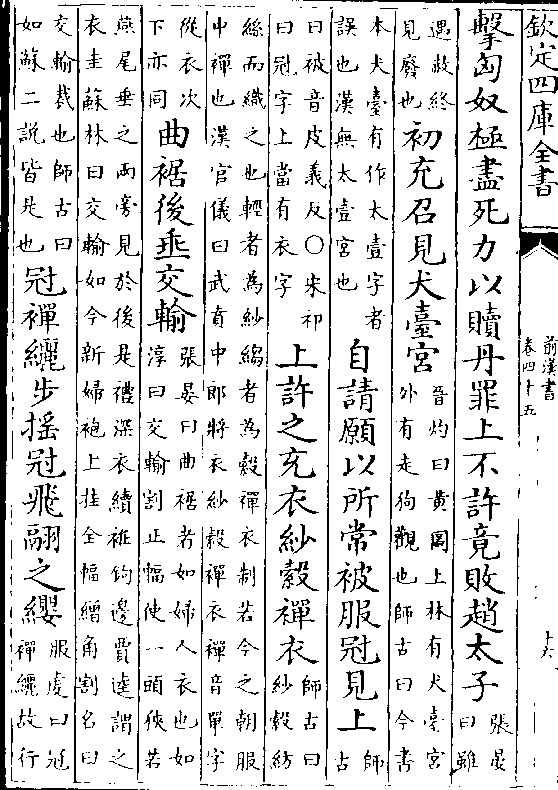 欽定四庫全書
前漢書
卷四十五
十六
擊匈奴極盡死力以贖丹罪上不許竟敗趙太子張晏曰雖
遇赦終見廢也初充召見犬臺宮晉灼曰黄圖上林有犬臺宮外有走狗觀也師古曰今書
本犬臺有作太壹字者誤也漢無太壹宮也自請願以所常被服冠見上師古
曰被音皮義反○宋祁曰冠字上當有衣字上許之充衣紗縠襌衣師古曰紗縠紡
絲而織之也輕者為紗縐者為縠襌衣制若今之朝服中襌也漢官儀曰武賁中郎將衣紗縠襌衣襌音單字
從衣次下亦同曲裾後垂交輸張晏曰曲裾者如婦人衣也如淳曰交輸割正幅使一頭狹若
燕尾垂之兩旁見於後是禮深衣續衽鉤邊賈逵謂之衣圭蘇林曰交輸如今新婦袍上挂全幅繒角割名曰
交輸裁也師古曰如蘇二說皆是也冠襌纚步摇冠飛翮之纓服虔曰冠襌纚故行